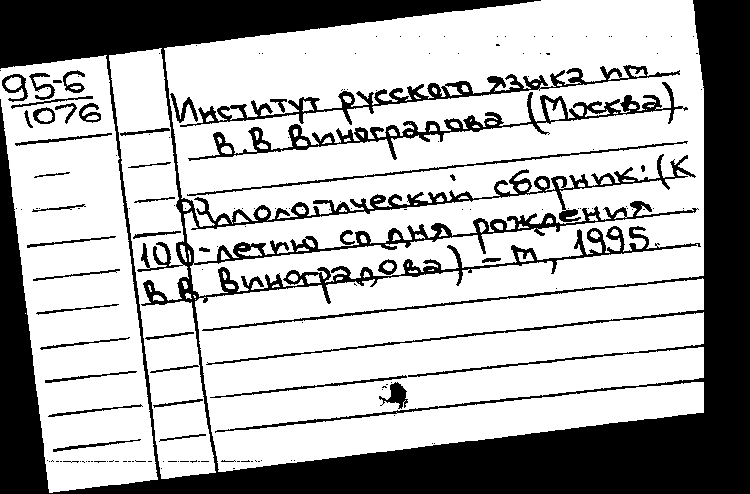 95-6
1076
Институт русского языка им.
В.В. Виноградова (Москва).
Филологический сборник: (К
100-летию со дня рождения
В.В. Виноградова). - М., 1995.